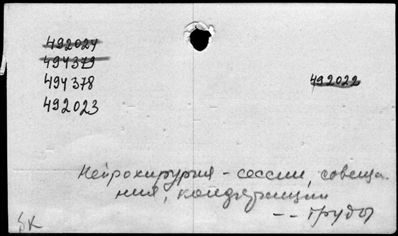 492024
494379
494378
492023
492022
Нейрохирургия - сессии, совеща-
ния, конференции
-- труды
БК